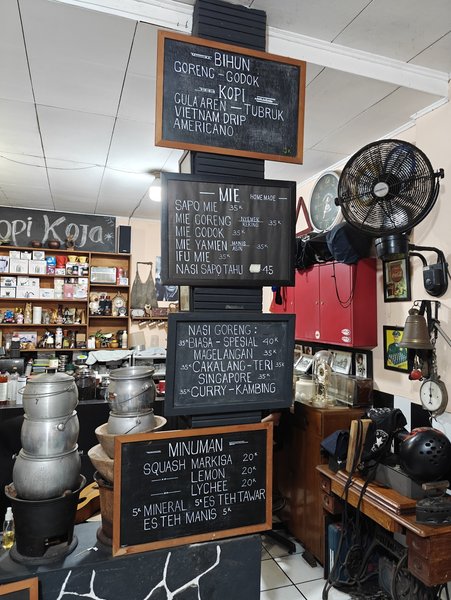 BIHUN
GORENG - GODOK
KOPI
GULA AREN - TUBRUK
VIETNAM DRIP
AMERICANO
MIE HOMEMADE
SAPO MIE 35K
MIE GORENG NYEMEK KERING 35K
MIE GODOK 35K
MIE YAMIEN MANIS 35K
IFU MIE 35K
NASI SAPO TAHU 45
OPI KOJA
NASI GORENG :
35K BIASA - SPESIAL 40K
MAGELANGAN 35K
35K CAKALANG - TERI 35K
SINGAPORE 35K
35K CURRY - KAMBING
MINUMAN
SQUASH MARKISA 20K
LEMON 20K
LYCHEE 20K
5K MINERAL 5K ES TEH TAWAR
ES TEH MANIS 5K